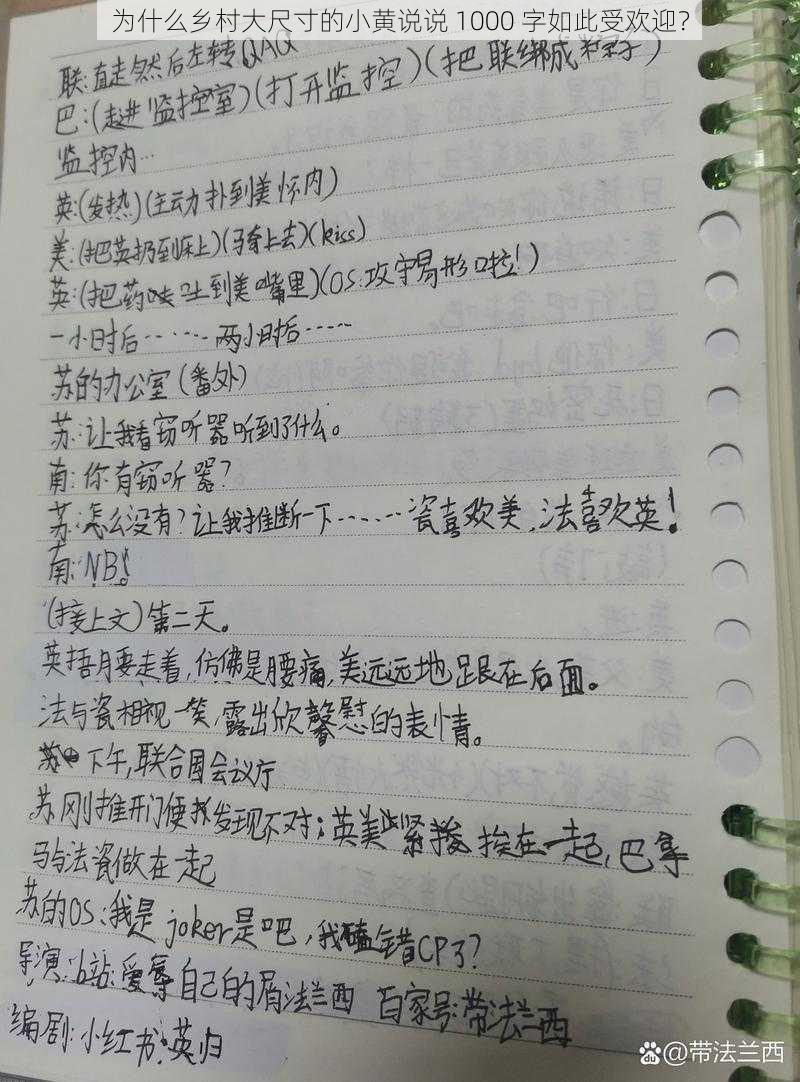 为什么乡村大尺寸的小黄说说 1000 字如此受欢迎？
联:直走然后左转QAQ
巴:(走进监控室)(打开监控)(把联绑成粽子)
监控内…
英:(发热)(主动扑到美怀内)
美:(把英扔到床上)(骑上去)(kiss)
英:(把药味吐到美嘴里)(OS:攻守易形啦!)
一小时后……两小时后……
苏的办公室(番外)
苏:让我看窃听器听到了什么。
南:你有窃听器?
苏:怎么没有?让我推断一下……瓷喜欢美,法喜欢英!
南:NB!
(接上文)第二天。
英捂腰走着,仿佛是腰痛,美远远地跟在后面。
法与瓷相视一笑,露出欣慰的表情。
下午,联合国会议厅
苏刚推开门便发现不对:英美紧挨在一起,巴拿
马与法瓷做在一起
苏的OS:我是joker是吧,我磕错CP了?
导演:b站:爱辱自己的屑法兰西 百家号:带法兰西
编剧:小红书:英归
@带法兰西